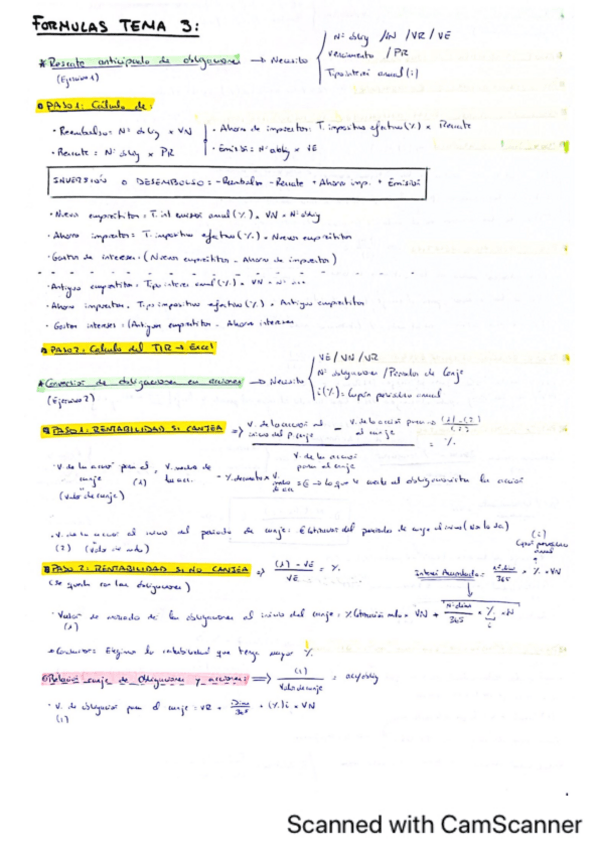 FORMULAS TEMA 3:
* Rescate anticipado de obligaciones → Necesito Nº oblig / VN / VR / VE
(Ejercicio 1) vencimiento / PR
Tipo interés anual (i)
PASO 1: Cálculo de:
· Reembolso: Nº oblig × VN · Ahorro de impuestos: T. impositivo efectivo (%) × Rescate
· Rescate = Nº oblig × PR · Emisión = Nº oblig × VE
INVERSIÓN O DESEMBOLSO = - Reembolso - Rescate + Ahorro imp. + Emisión
· Nuevo empréstito = T. int anual (%) × VN × Nº oblig
· Ahorro impuestos = T. impositivo efectivo (%) × Nuevo empréstito
· Gastos de intereses = (Nuevo empréstito - Ahorro de impuestos)
· Antiguo empréstito = Tipo interés anual (%) × VN × Nº ...
· Ahorro impuestos = Tipo impositivo efectivo (%) × Antiguo empréstito
· Gastos intereses = (Antiguo empréstito - Ahorro intereses
PASO 2: Cálculo del TIR → Excel
* Conversión de obligaciones en acciones → Necesito VE / VN / VR
(Ejercicio 2) Nº obligaciones / Periodos de Canje
i (%) = Cupón anual
PASO 1: RENTABILIDAD SI CANJEA => V. de la acción al inicio del P. canje - V. de la acción para el canje (1) - (2) / (2) = %
V. de la acción para el canje
· V. de la acción para el canje (1) = V. medio de las acc. - % descuento × V. medio de acc = € → lo que le cuesta al obligacionista la acción
(Valor de canje)
· V. de la acción al inicio del periodo de canje: Cotización del periodo de canje al inicio (Nos lo da)
(2)
PASO 2: RENTABILIDAD SI NO CANJEA => (1) - VE / VE = % Interés Acumulado = nº días / 365 × % × VN
(Se queda con las obligaciones)
· Valor de mercado de las obligaciones al inicio del canje = % Cotización × VN + Nº días / 365 × % i × N
(1)
* Conclusión: Elegimos la rentabilidad que tenga mayor %
Relación canje de obligaciones y acciones => (1) / Valor de canje = acc/oblig
· V. de obligación para el canje = VR + días / 365 × (%) i × VN
(1)
Scanned with CamScanner